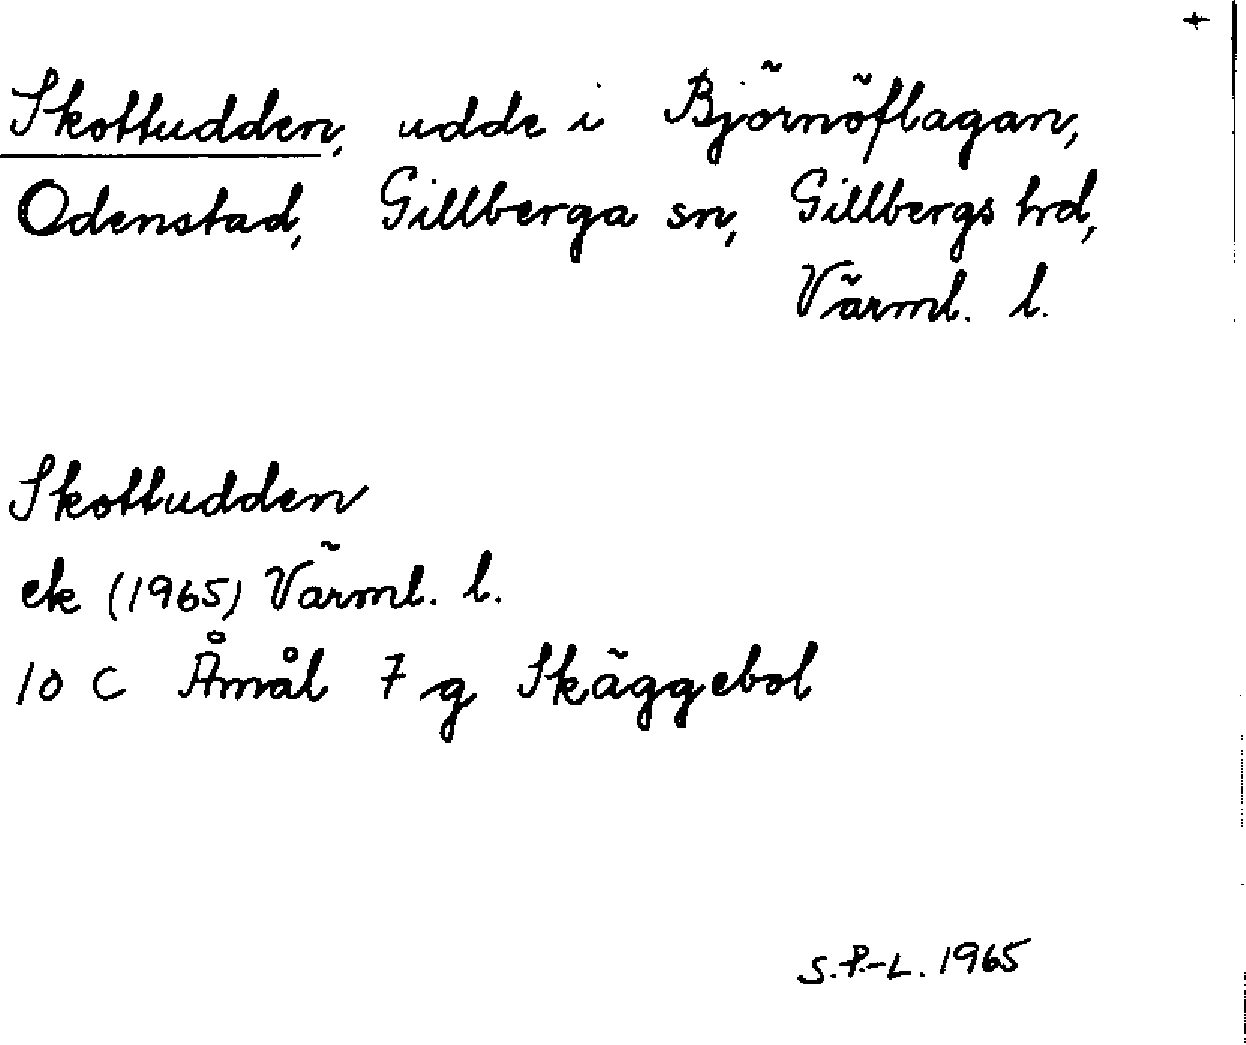 Skottudden, udde i Björnöflagan,
Odenstad, Gillberga sn, Gillbergs hrd,
Värml. l.
Skottudden
ek (1965) Värml. l.
10 C Åmål 7 g Skäggebol
S.P-L. 1965